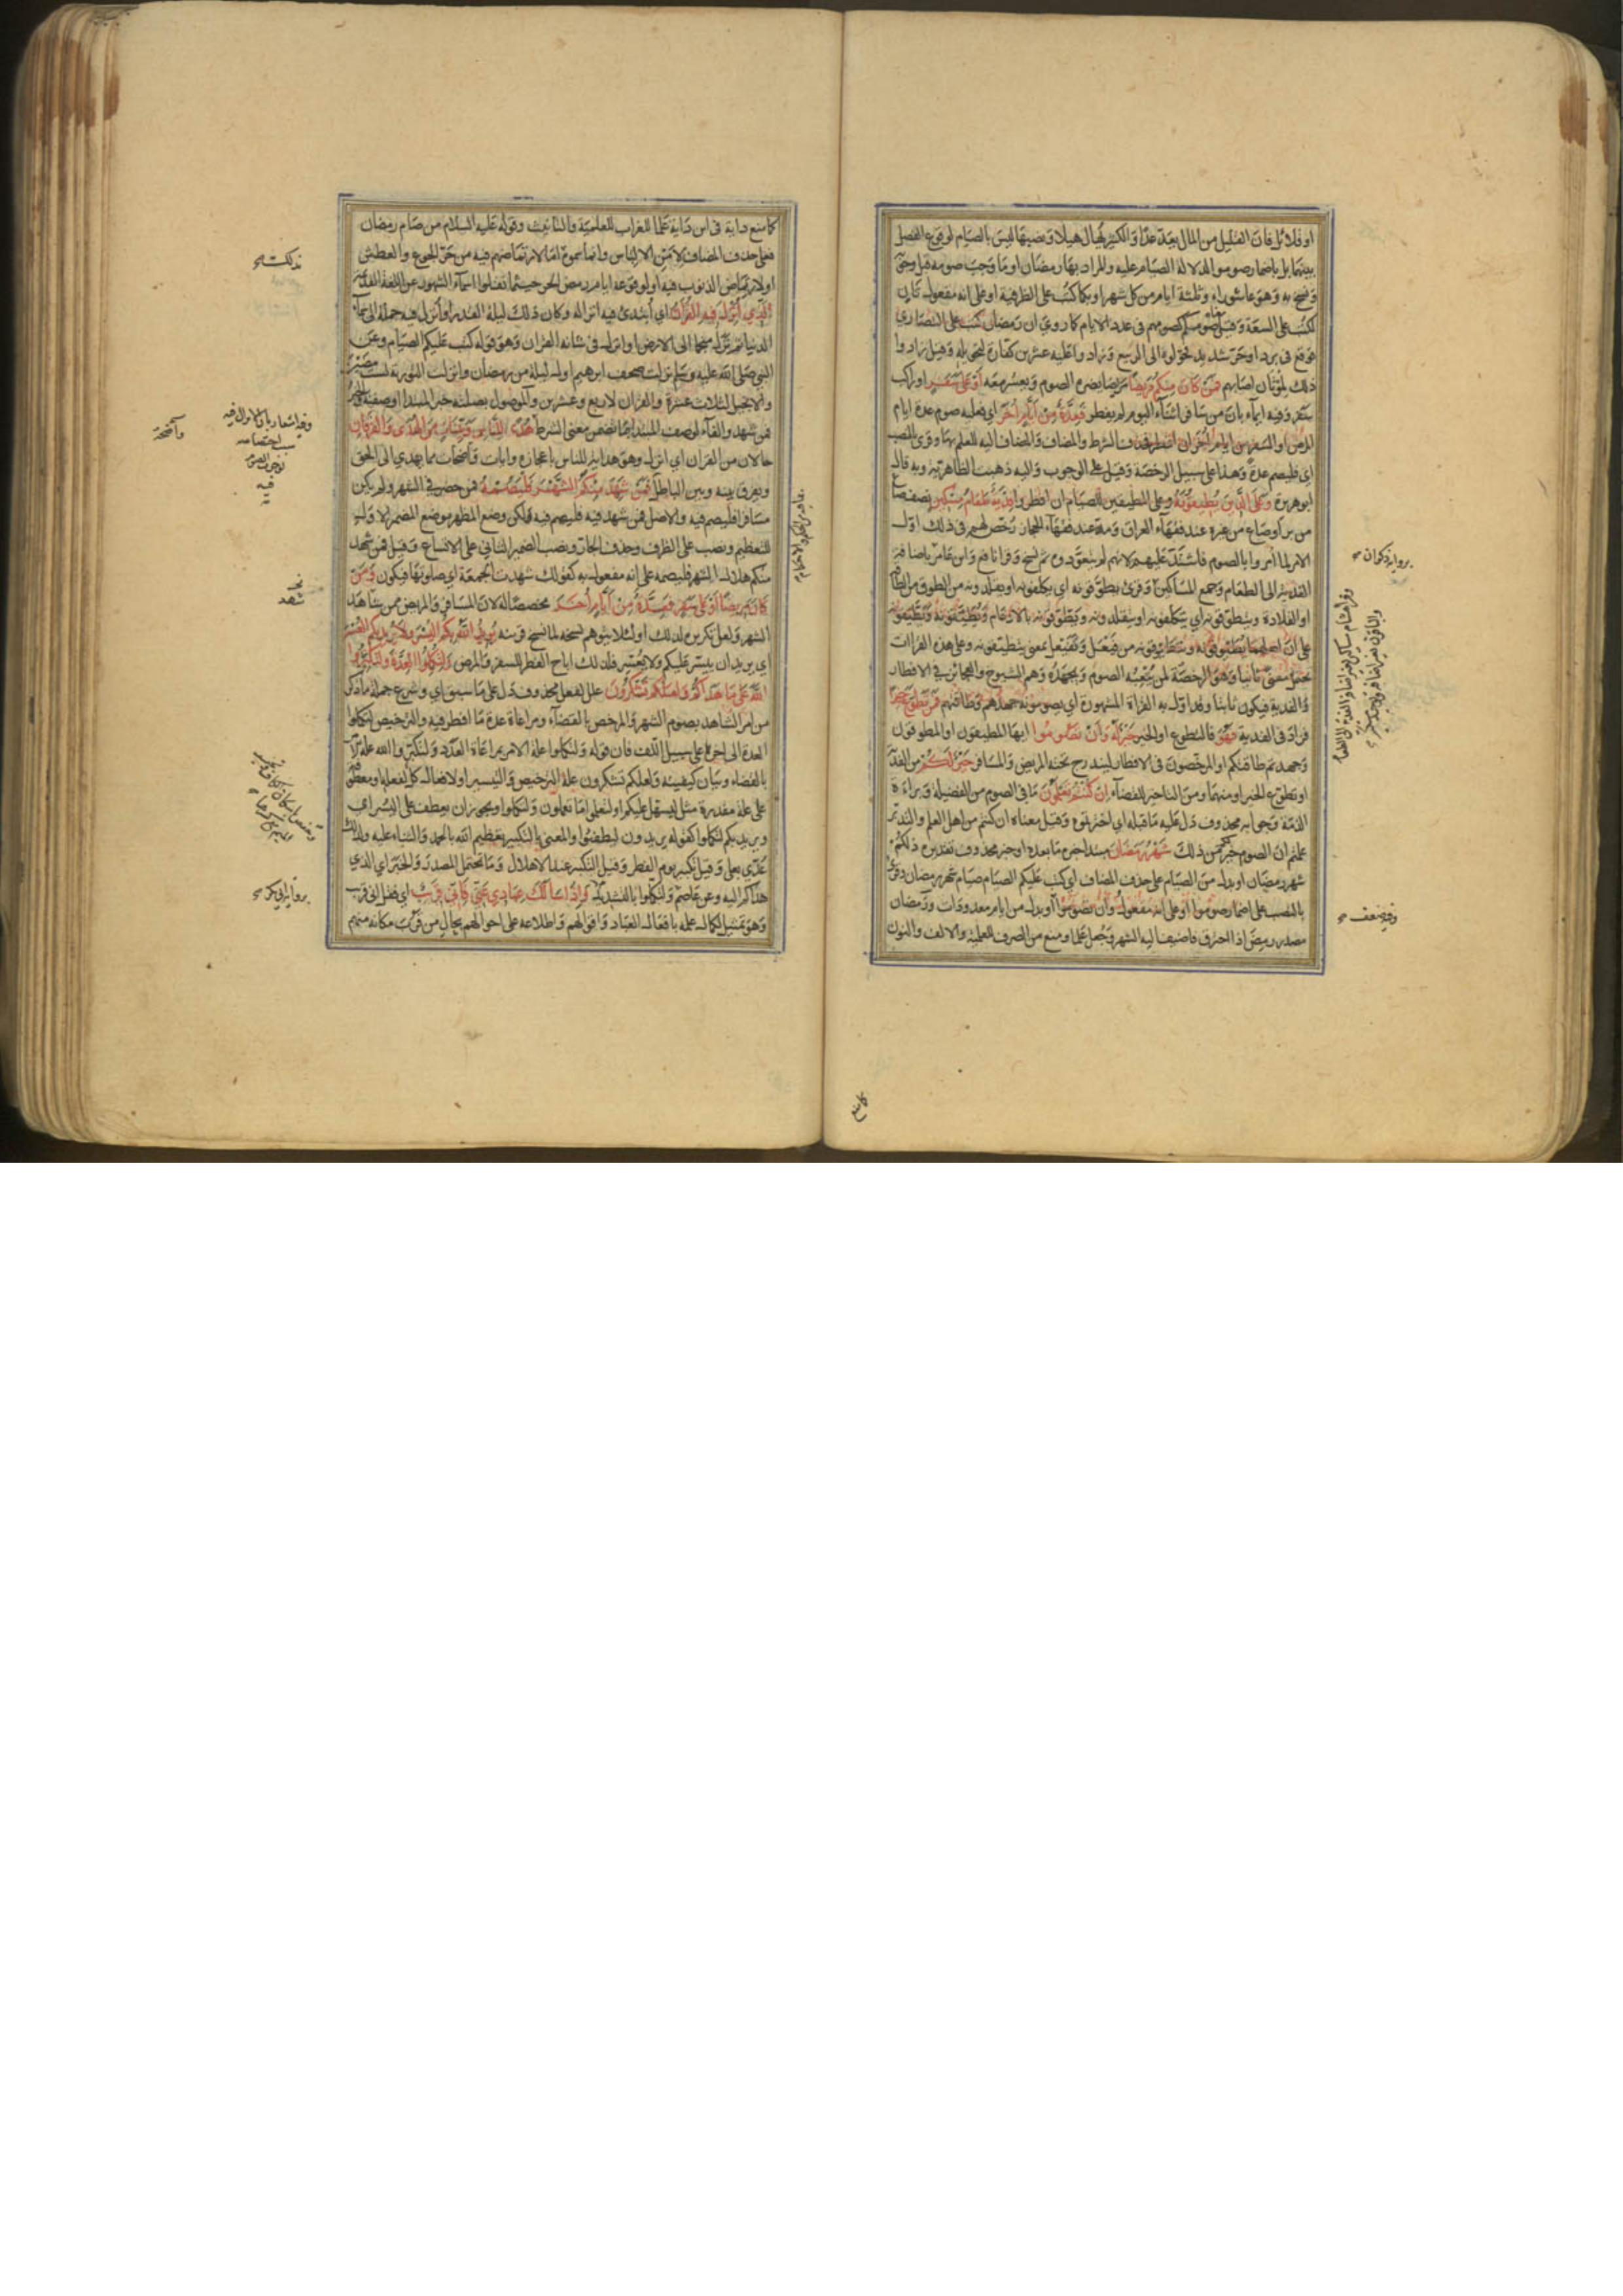 او قلائل فان القليل من المال يعد عدا والكثير يهال هيلا ونصبها ليس بالصيام لوقوع الفصل
بينهما بل باضمار صوموا لدلالة الصيام عليه والمراد بها رمضان او ما وجب صومه قبل وجوبه
ونسخ به وهو عاشوراء وثلثة ايام من كل شهر او بكما كتب على الظرفية او على انه مفعول ثان
لكتب على السعة وقيل صومكم كصومهم في عدد الايام كما روي ان رمضان كتب على النصارى
فوقع في برد او حر شديد فحولوه الى الربيع وزادوا عليه عشرين كفارة لتحويله وقيل زادوا
ذلك لموتان اصابهم فمن كان منكم مريضا مرضا يضره الصوم ويعسر معه او على سفر او راكب
سفر وفيه ايماء بان من سافر في اثناء اليوم لم يفطر فعدة من ايام اخر اي فعليه صوم عدة ايام
المرض او السفر من ايام اخر ان افطر فحذف الشرط والمضاف والمضاف اليه للعلم بها وقرئ بالنصب
اي فليصم عدة وهذا على سبيل الرخصة وقيل على الوجوب واليه ذهبت الظاهرية وبه قال
ابو هريرة وعلى الذين يطيقونه وعلى المطيقين للصيام ان افطروا فدية طعام مسكين نصف صاع
من بر او صاع من غيره عند فقهاء العراق ومد عند فقهاء الحجاز رخص لهم في ذلك اول
الامر لما امروا بالصوم فاشتد عليهم لانهم لم يتعودوه ثم نسخ وقرا نافع وابن عامر باضافة
الفدية الى الطعام وجمع المساكين وقرئ يطوقونه اي يكلفونه او يقلدونه من الطوق من الطاقة
او القلادة ويتطوقونه اي يتكلفونه او يتقلدونه ويطوقونه بالادغام ويطيقونه ويطيقونه
على ان اصلهما يطيوقونه ويتطيوقونه من فيعل وتفيعل بمعنى يتطيقونه وعلى هذه القراات
يحتمل معنى ثانيا وهو الرخصة لمن يتعبه الصوم ويجهده وهم الشيوخ والعجائز في الافطار
والفدية فيكون ثابتا وقد اول به القراة المشهورة اي يصومونه جهدهم وطاقتهم فمن تطوع خيرا
فزاد في الفدية فهو فالتطوع او الخير خير له وان تصوموا ايها المطيقون او المطوقون
وجهدتم طاقتكم او المرخصون في الافطار ليندرج تحته المريض والمسافر خير لكم من الفدية
او تطوع الخير او منهما ومن التاخير للقضاء ان كنتم تعلمون ما في الصوم من الفضيلة وبراءة
الذمة وجوابه محذوف دل عليه ما قبله اي اخترتموه وقيل معناه ان كنتم من اهل العلم والتدبر
علمتم ان الصوم خير لكم من ذلك شهر رمضان مبتدا خبره ما بعده او خبر محذوف تقديره ذلكم
شهر رمضان او بدل من الصيام على حذف المضاف اي كتب عليكم الصيام صيام شهر رمضان وقرئ
بالنصب على اضمار صوموا او على انه مفعول وان تصوموا او بدل من ايام معدودات ورمضان
مصدر رمض اذا احترق فاضيف اليه الشهر وجعل علما ومنع من الصرف للعلمية والالف والنون
برواية ذكوان
وفيه ضعف
كما منع
كما منع داية في ابن داية علما للغراب للعلمية والتانيث وقوله عليه السلام من صام رمضان
فعلى حذف المضاف لامن الالباس وانما سموه لذلك اما لارتماضهم فيه من حر الجوع والعطش
او لارتماض الذنوب فيه او لوقوعه ايام رمض الحر حيثما نقلوا اسماء الشهور عن اللغة القديمة
الذي انزل فيه القران اي ابتدئ فيه انزاله وكان ذلك ليلة القدر او انزل فيه جملة الى سماء
الدنيا ثم نزل منجما الى الارض او انزل في شانه القران وهو قوله كتب عليكم الصيام وعن
النبي صلى الله عليه وسلم نزلت صحف ابرهيم اول ليلة من رمضان وانزلت التورية لست مضين
والانجيل لثلاث عشرة والقران لاربع وعشرين والموصول بصلته خبر المبتدا او صفته والخبر
فمن شهد والفاء لوصف المبتدا بما تضمن معنى الشرط هدى للناس وبينات من الهدى والفرقان
حالان من القران اي انزل وهو هداية للناس باعجازه وايات واضحات مما يهدي الى الحق
ويفرق بينه وبين الباطل فمن شهد منكم الشهر فليصمه فمن حضر في الشهر ولم يكن
مسافرا فليصم فيه والاصل فمن شهد فيه فليصم فيه ولكن وضع المظهر موضع المضمر الاول
للتعظيم ونصب على الظرف وحذف الجار ونصب الضمير الثاني على الاتساع وقيل فمن شهد
منكم هلال الشهر فليصمه على انه مفعول به كقولك شهدت الجمعة اي صلوتها فيكون ومن
كان مريضا او على سفر فعدة من ايام اخر مخصصا له لان المسافر والمريض ممن شاهد
الشهر ولعل تكريره لذلك او لئلا يتوهم نسخه كما نسخ قرينه يريد الله بكم اليسر ولا يريد بكم العسر
اي يريد ان ييسر عليكم ولا يعسر فلذلك اباح الفطر للسفر والمرض ولتكملوا العدة ولتكبروا
الله على ما هداكم ولعلكم تشكرون علل لفعل محذوف دل على ما سبق اي وشرع جملة ما ذكر
من امر الشاهد بصوم الشهر والمرخص بالقضاء ومراعاة عدة ما افطر فيه والترخيص لتكملوا
العدة الى اخره على سبيل اللف فان قوله ولتكملوا علة الامر بمراعاة العدد ولتكبروا الله علة الامر
بالقضاء وبيان كيفيته ولعلكم تشكرون علة الترخيص والتيسير او لافعال كل لفعله او معطوفة
على علة مقدرة مثل ليسهل عليكم او لتعلموا ما تعملون ولتكملوا ويجوز ان يعطف على اليسر اي
ويريد بكم لتكملوا كقوله يريدون ليطفئوا والمعنى بالتكبير تعظيم الله بالحمد والثناء عليه ولذلك
عدي بعلى وقيل تكبير يوم الفطر وقيل التكبير عند الاهلال وما تحتمل المصدر والخبر اي الذي
هداكم اليه وعن عاصم ولتكملوا بالتشديد واذا سالك عبادي عني فاني قريب اي فقل اني قريب
وهو تمثيل لكمال علمه بافعال العباد واقوالهم واطلاعه على احوالهم بحال من قرب مكانه منهم
بذلك
وفيه اشعار بان الانزال فيه
سبب اختصاصه
بوجوب الصوم
فيه
واضحة
شهد
برواية ابي بكر